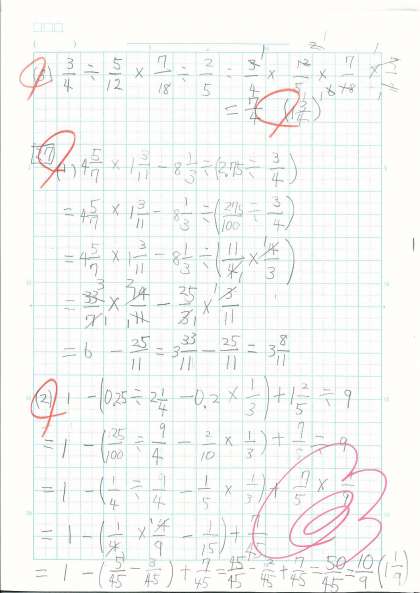 (8) 3/4 ÷ 5/12 × 7/18 ÷ 2/5 = 3/4 × 12/5 × 7/18 × 5/2
= 7/4 (1 3/4)
17
(1) 4 5/7 × 1 3/11 − 8 1/3 ÷ (2.75 ÷ 3/4)
= 4 5/7 × 1 3/11 − 8 1/3 ÷ (275/100 ÷ 3/4)
= 4 5/7 × 1 3/11 − 8 1/3 ÷ (11/4 × 4/3)
= 33/7 × 14/11 − 25/3 × 3/11
= 6 − 25/11 = 3 33/11 − 25/11 = 3 8/11
(2) 1 − (0.25 ÷ 2 1/4 − 0.2 × 1/3) + 1 2/5 ÷ 9
= 1 − (25/100 ÷ 9/4 − 2/10 × 1/3) + 7/5 ÷ 9
= 1 − (1/4 ÷ 9/4 − 1/5 × 1/3) + 7/5 ×
= 1 − (1/4 × 4/9 − 1/15) + 7/
= 1 − (5/45 − 3/45) + 7/45 = 45/45 − 2/45 + 7/45 = 50/45 = 10/9 (1 1/9)